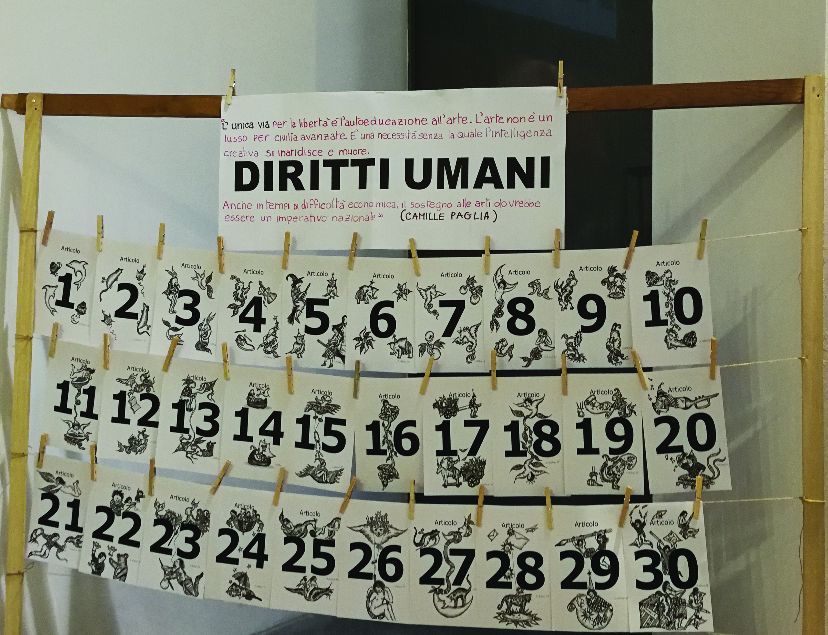 È unica via per la libertà è l'autoeducazione all'arte. L'arte non è un
lusso per civiltà avanzate. E' una necessità senza la quale l'intelligenza
creativa si inaridisce e muore.
DIRITTI UMANI
Anche in tempi di difficoltà economica, il sostegno alle arti dovrebbe
essere un imperativo nazionale »      (CAMILLE PAGLIA)
Articolo
1
2
Articolo
3
Articolo
4
Articolo
5
Articolo
6
Articolo
7
Articolo
8
Articolo
9
Articolo
10
Articolo
11
Articolo
12
Articolo
13
Articolo
14
Articolo
15
Articolo
16
Articolo
17
Articolo
18
Articolo
19
Articolo
20
Articolo
21
Articolo
22
Articolo
23
Articolo
24
Articolo
25
Articolo
26
Articolo
27
Articolo
28
Articolo
29
Articolo
30